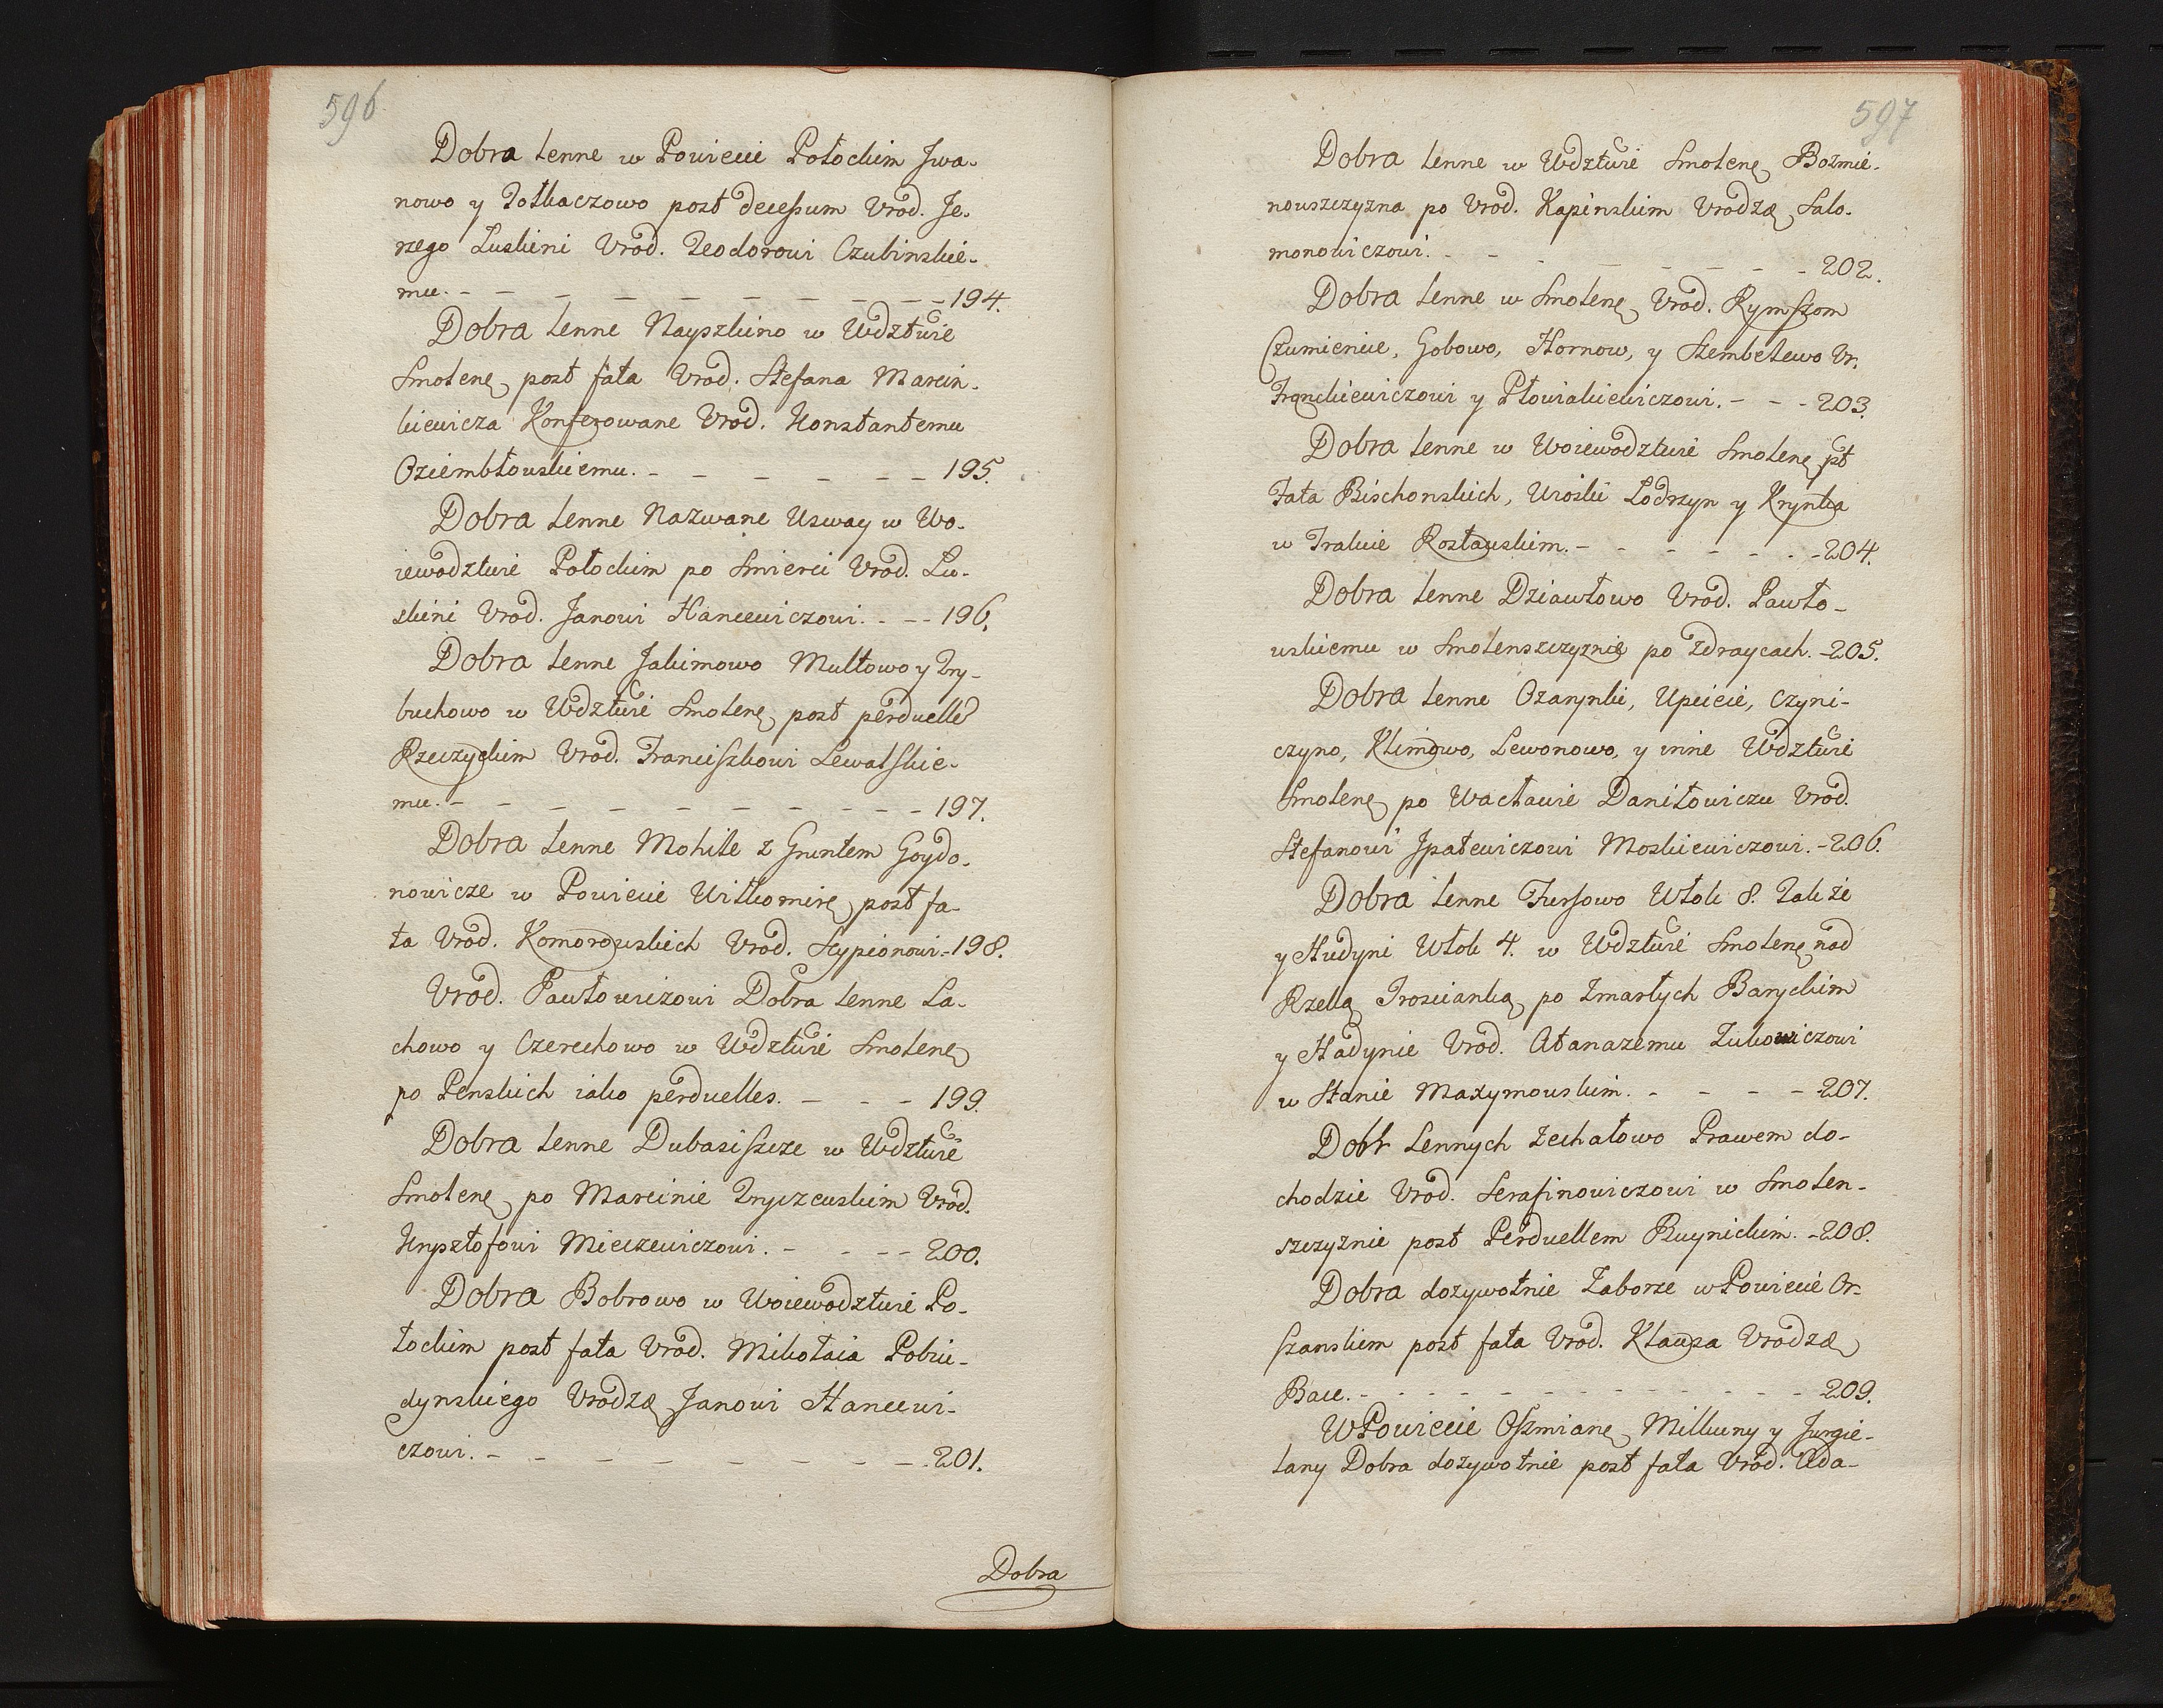 596
Dobra Lenne w Powiecie Połockim Jwa-
nowo y Tołkaczowo post decessum Urod. Je-
rzego Luskini Urod. Teodorowi Czubinskie-
mu. - - - - - - - - - 194.
Dobra Lenne Nayszkino w Wdztwie
Smolenę post fata Urod. Stefana Marcin-
kiewicza Konferowane Urod. Konstantemu
Oziembłowskiemu. - - - - - - 195.
Dobra Lenne Nazwane Usway w Wo-
iewodztwie Połockim po Smierci Urod. Lu-
skini Urod. Janowi Hancewiczowi. - - - 196.
Dobra Lenne Jakimowo Multowo y Try-
buchowo w Wdztwie Smolenę post perduelle
Rzeczyckim Urod. Franciszkowi Lewalskie-
mu. - - - - - - - - - 197.
Dobra Lenne Mohile z Gruntem Goydo-
nowicze w Powiecie Wiłkomirę post fa-
ta Urod. Komorowskich Urod. Scypionowi. - 198.
Urod. Pawłowiczowi Dobra Lenne La-
chowo y Czerechowo w Wdztwie Smolenę
po Penskich iako perduelles. - - - 199.
Dobra Lenne Dubasiszcze w Wdztwie
Smolenę po Marcinie Tryczewskim Urod.
Krysztofowi Mieczewiczowi. - - - - 200.
Dobra Bobrowo w Woiewodztwie Po-
łockim post fata Urod. Mikołaia Pobie-
dynskiego Urodzę Janowi Hancewi-
czowi. - - - - - - - - 201.
Dobra
597
Dobra Lenne w Wdztwie Smolenę Bozmie-
nowszczyzna po Urod. Kapinskim Urodzę Salo-
monowiczowi. - - - - - - - - 202.
Dobra Lenne w Smolenę Urod. Rymszom
Czumienice, Gobowo, Hornow, y Szembelewo Ur.
Franckiewiczowi y Płowiakiewiczowi. - - - 203.
Dobra Lenne w Woiewodztwie Smolenę pt
Fata Bischonskich, Wioski Lodrzyn y Krynka
w Trakcie Rosławskim. - - - - - - 204.
Dobra Lenne Dziawłowo Urod. Pawło-
wskiemu w Smolenszczyznie po zdraycach. - 205.
Dobra Lenne Ozarynki, Upicie, Czyni-
czyno, Klimowo, Lewonowo, y inne Wdztwie
Smolenę po Wacławie Daniłowiczu Urod.
Stefanowi Jpatewiczowi Moskiewiczowi. - 206.
Dobra Lenne Fursowo Włok 8. Także
y Hudyni Włok 4. w Wdztwie Smolenę nad
Rzeką Trościanką po Zmarłych Baryckim
y Hadynie Urod. Atanazemu Zukowiczowi
w Stanie Maxymowskim. - - - - 207.
Dobr Lennych Zechałowo Prawem do-
chodzie Urod. Serafinowiczowi w Smolen-
szczyznie post Perduellem Ruynickim. - 208.
Dobra dozywotnie Zaborze w Powiecie Or-
szanskim post fata Urod. Klauza Urodzę
Bace. - - - - - - - - - - 209.
W Powiecie Oszmianę Milkuny y Jurgie-
lany Dobra dozywotnie post fata Urod. Ada-